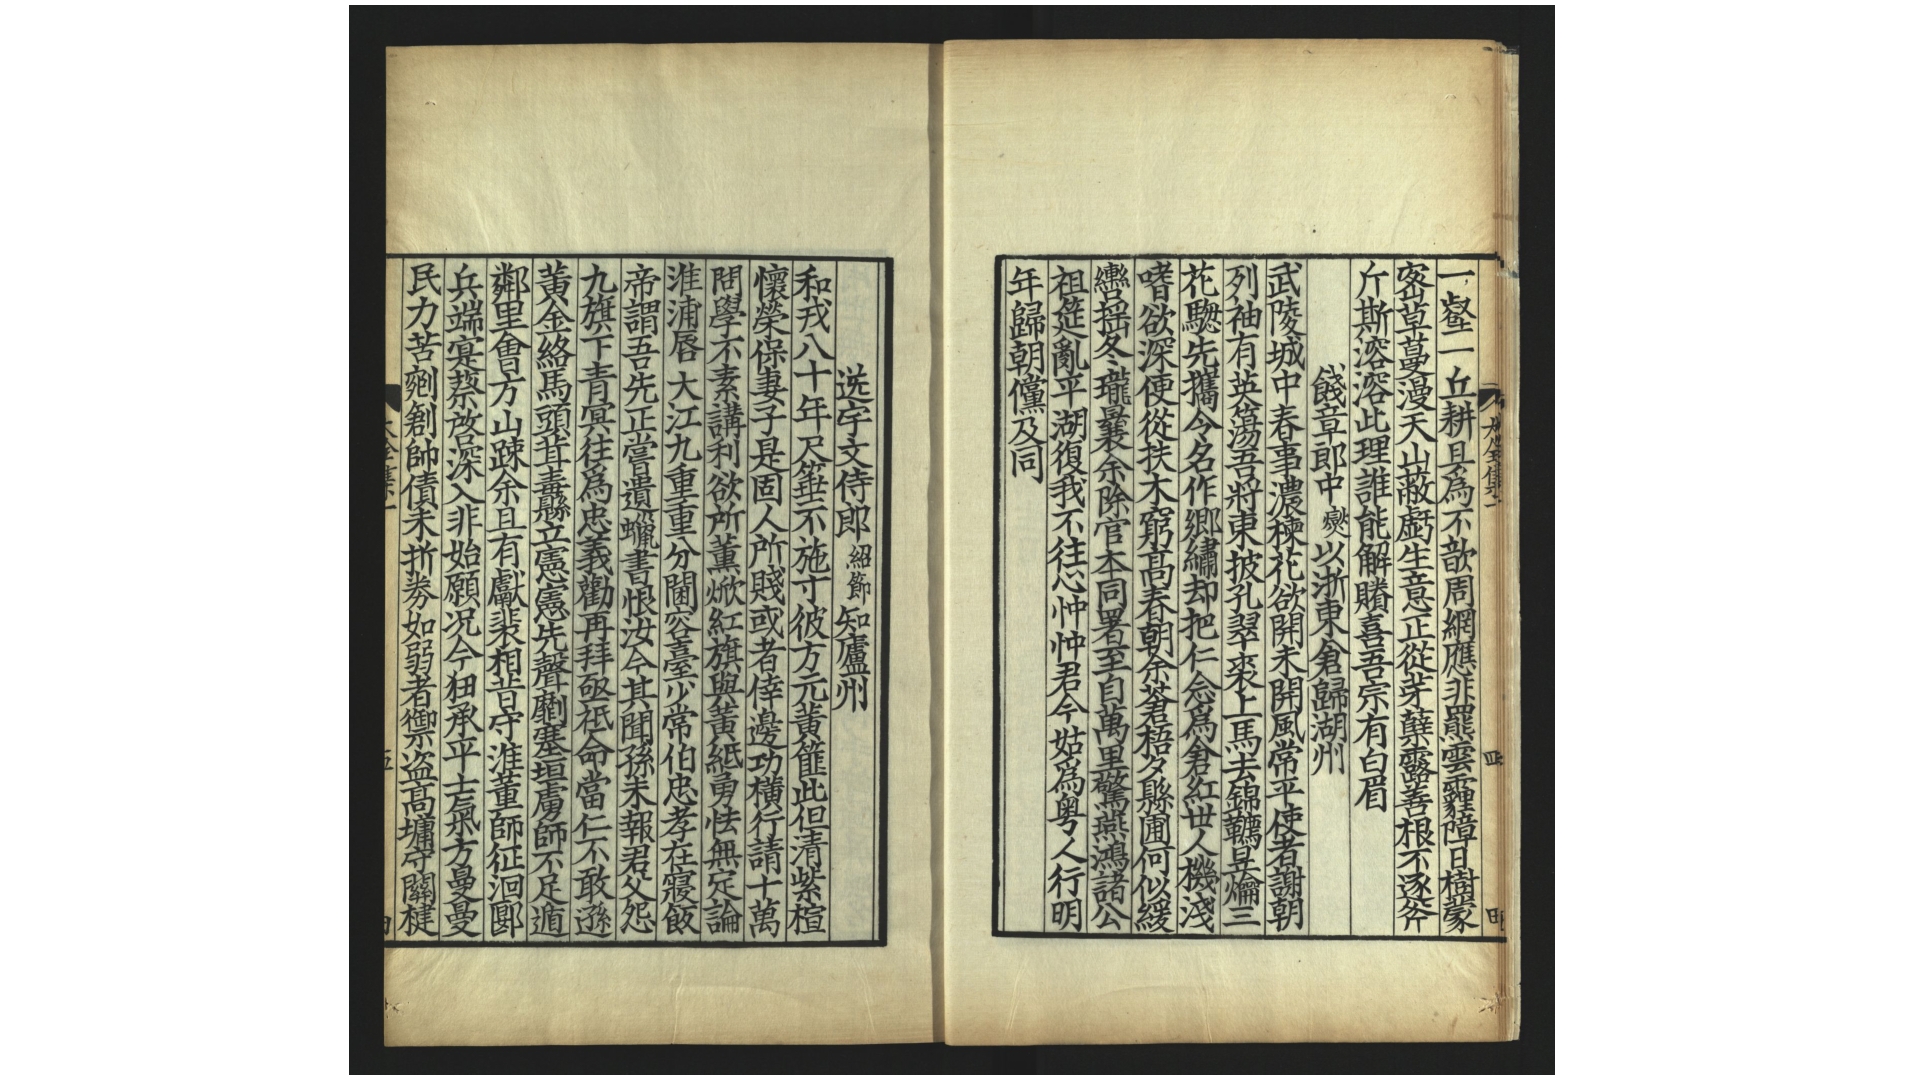 一壑一丘耕且爲不歆周網應非羆雲霾障日樹蒙
密草蔓漫天山蔽虧生意正從芽櫱露善根不逐斧
斤斯溶溶此理誰能解賸喜吾宗有白眉
餞章郎中燮以浙東倉歸湖州
武陵城中春事濃楝花欲開未開風常平使者謝朝
列袖有英蕩吾將東披孔翠裘上馬去錦韉晃爚三
花騘先攜今名作鄉繡却把仁念爲倉紅世人機淺
嗜欲深使從扶木窮高舂朝余蒼梧夕縣圃何似緩
轡揺冬瓏曩余除官本同署至自萬里驚燕鴻諸公
祖筵亂平湖復我不往心忡忡君今姑爲粤人行明
年歸朝儻及同
大全集一
四
送宇文侍郎紹節知廬州
和戎八十年尺箠不施寸彼方元黄篚此但清紫楦
懷榮保妻子是固人所賤或者倖邊功横行請十萬
問學不素講利欲所薰焮紅旗與黄紙勇怯無定論
淮浦唇大江九重重分閫容臺少常伯忠孝在寢飯
帝謂吾先正嘗遺蠟書恨汝今其聞孫未報君父怨
九旗下青冥往爲忠義勸再拜亟祗命當仁不敢遜
黄金絡馬頭茸毒懸立憲憲先聲劘塞垣虜師不足遁
鄰里會方山踈余且有獻裴相昔守淮董師征洄郾
兵端寔蔡啟深入非始願况今狃承平士氣方曼曼
民力苦剜創帥債未折券如弱者禦盗高墉守關楗
大全集一
五